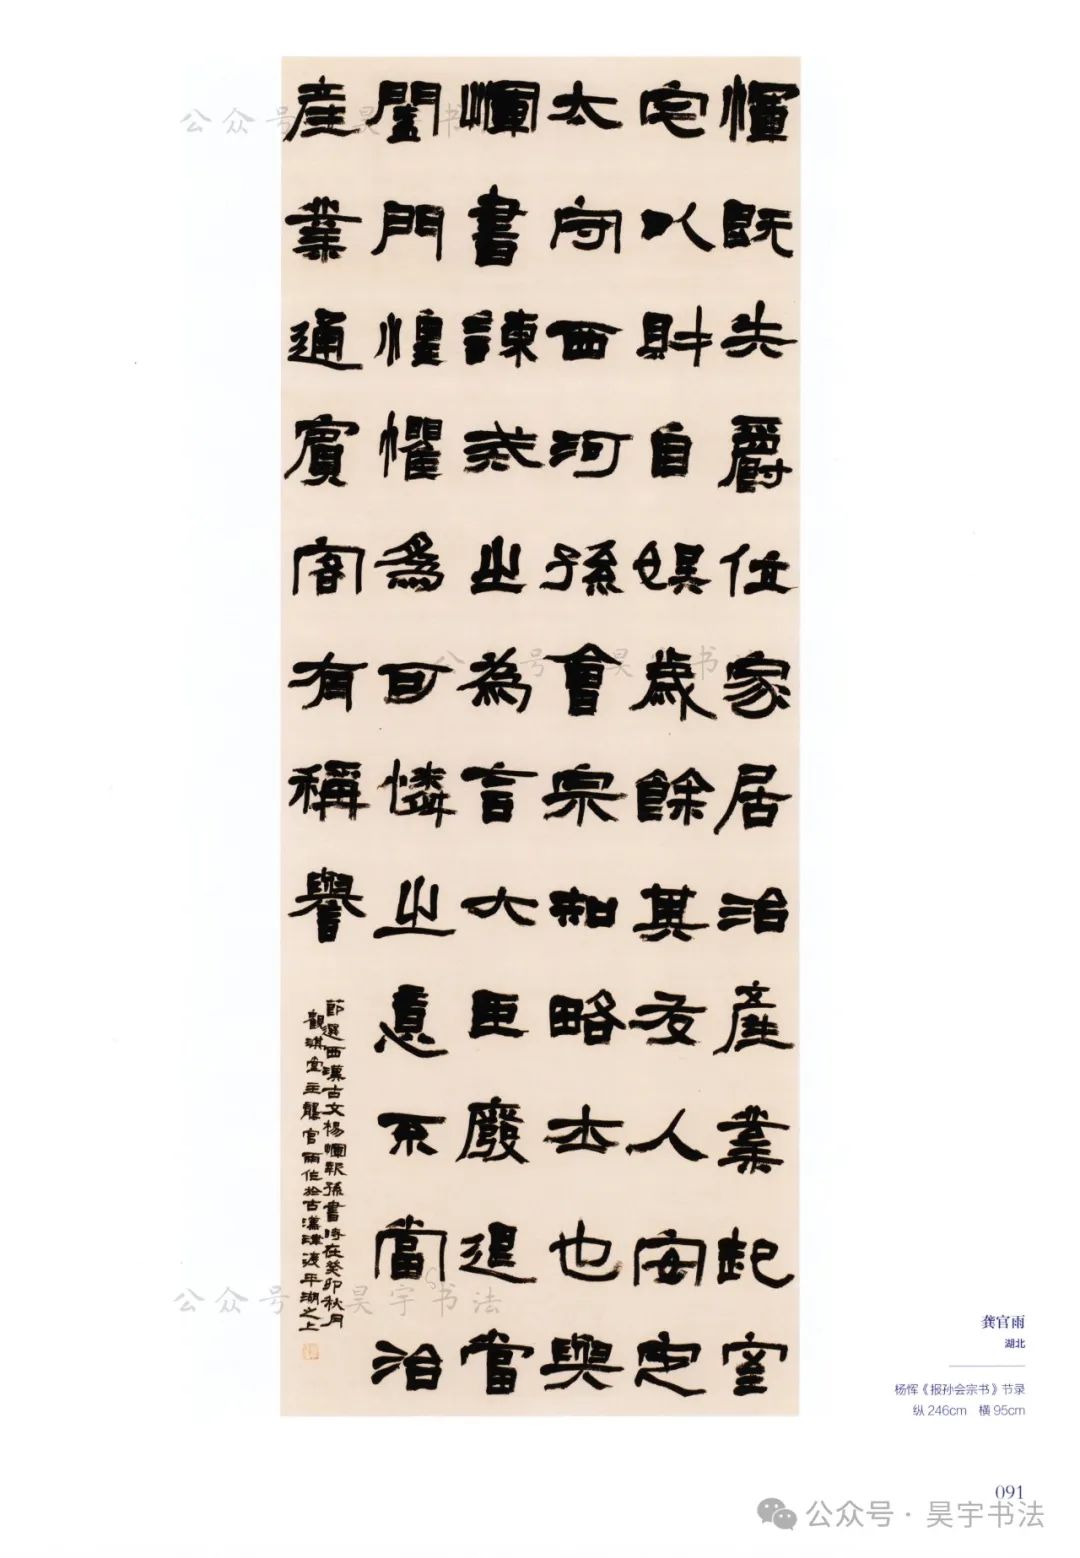 惲既失爵位家居治產業起室
宅以財自娛歲餘其友人安定
太守西河孫會宗知略士也與
惲書諫戒之為言大臣廢退當
闔門惶懼為可憐之意不當治
產業通賓客有稱譽
節選西漢古文楊惲報孫書時在癸卯秋月
觀淇堂主龔官雨作於古漢津後平湖之上
龚官雨
湖北
杨恽《报孙会宗书》节录
纵 246cm 横 95cm
091
公众号 · 昊宇书法
公众号 昊宇书法
公众号 昊宇书法
公众号 昊宇书法